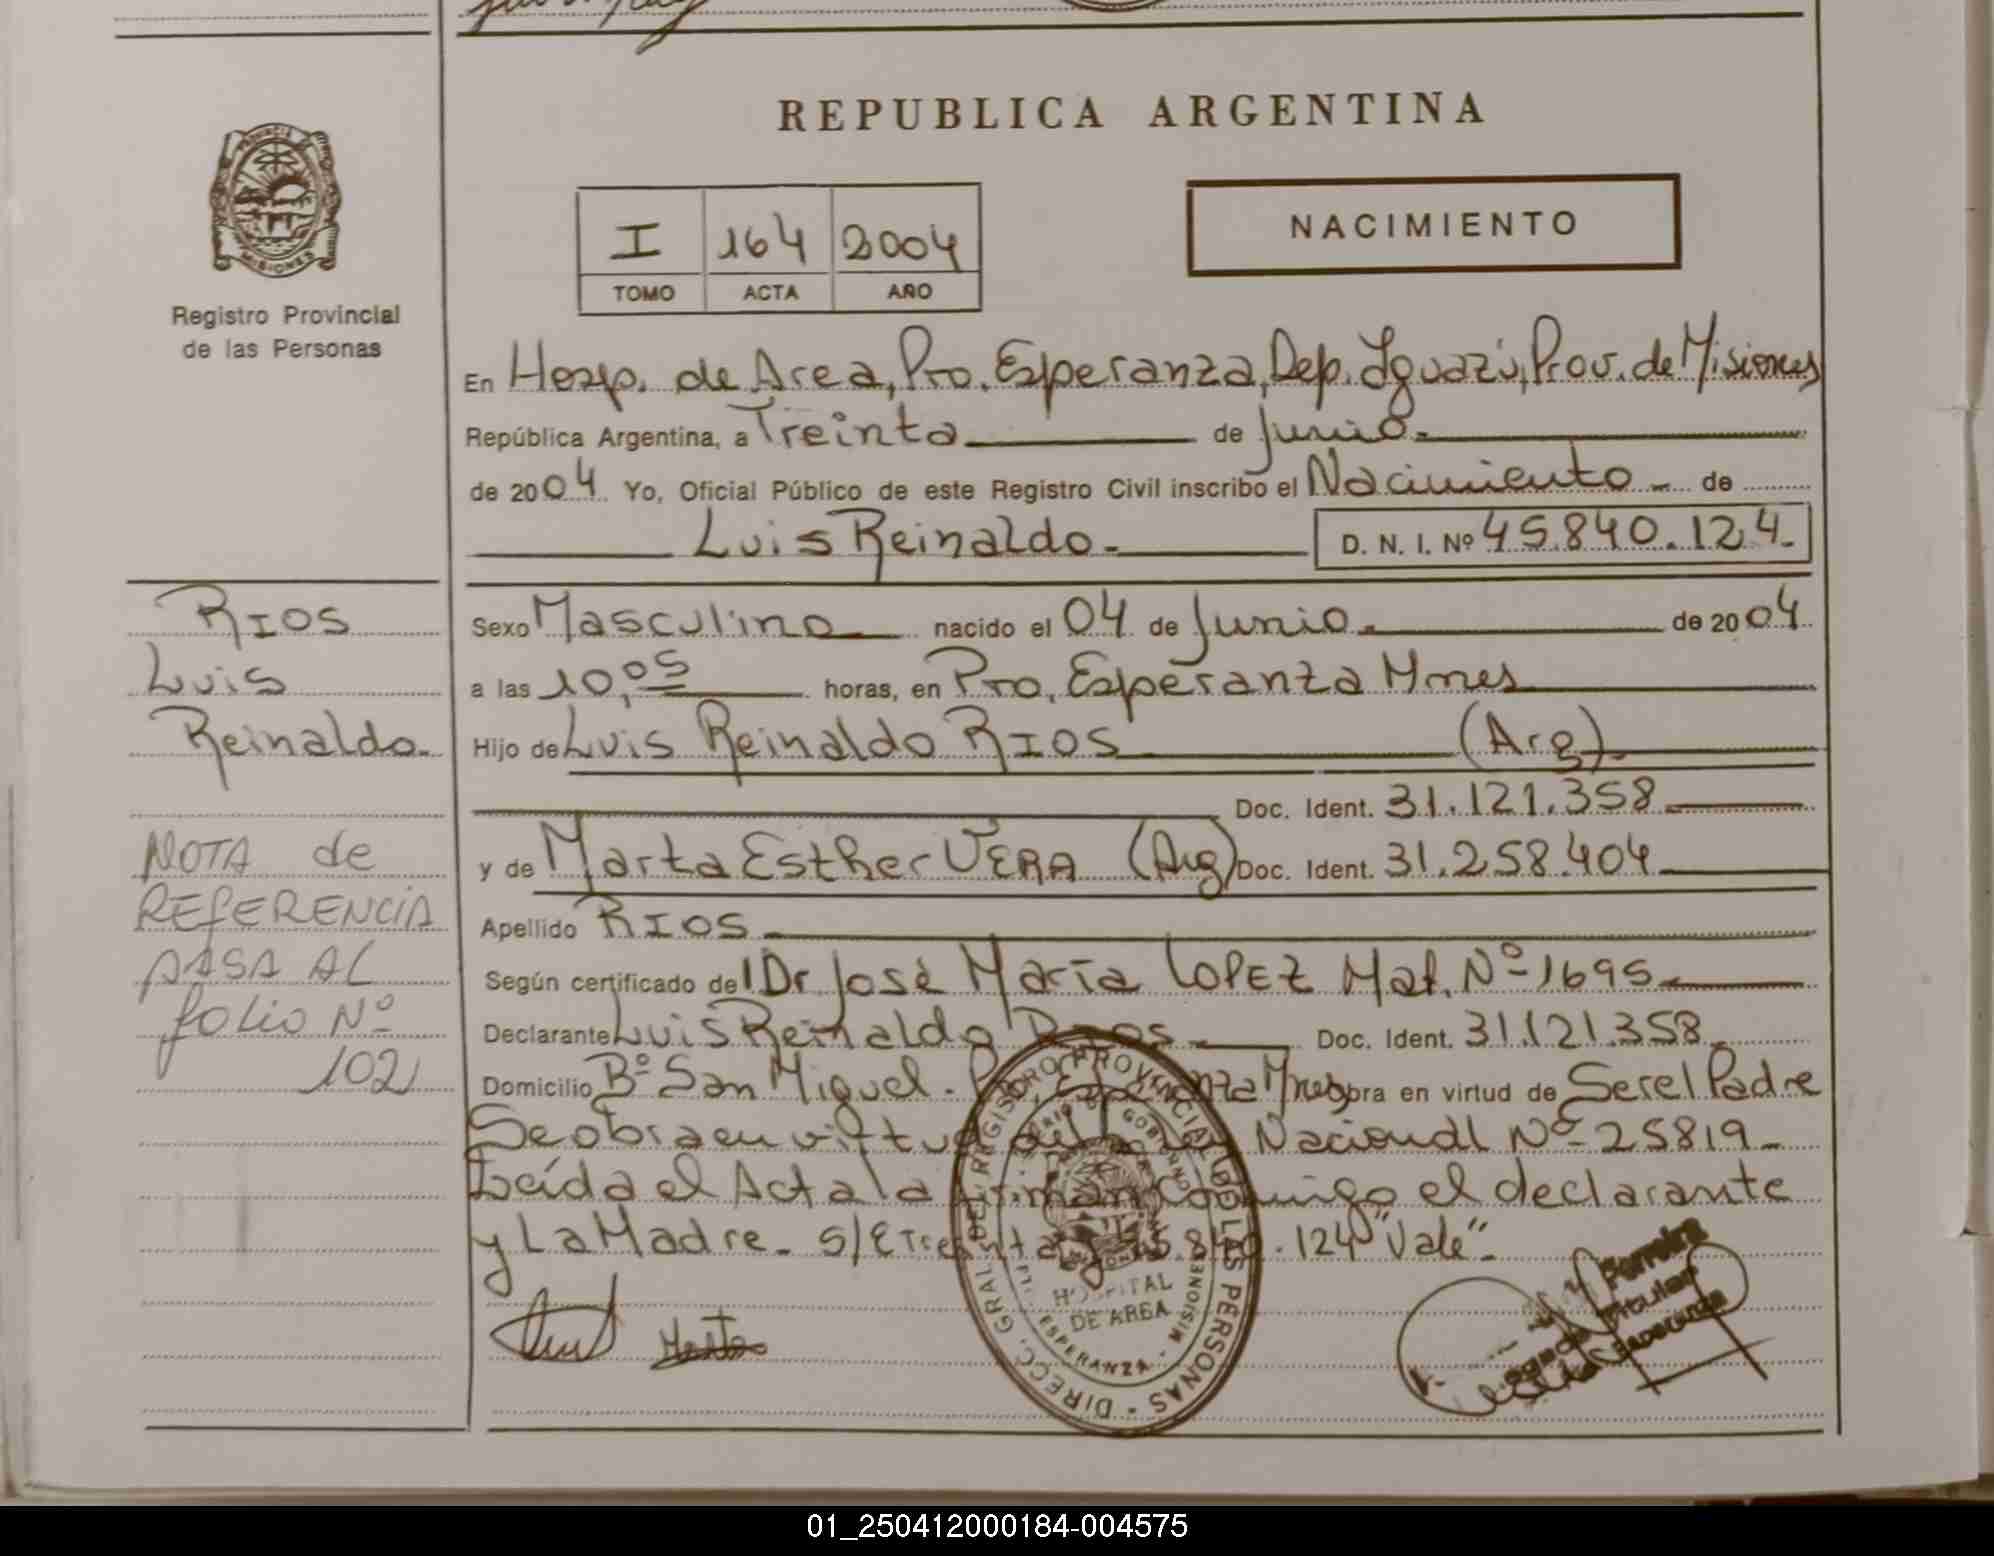 REPUBLICA ARGENTINA
PROVINCIA
MISIONES
Registro Provincial
de las Personas
I 164 2004
TOMO ACTA AÑO
NACIMIENTO
En Hosp. de Area, Pto. Esperanza, Dep. Iguazú, Prov. de Misiones
República Argentina, a Treinta de Junio.
de 2004 Yo, Oficial Público de este Registro Civil inscribo el Nacimiento de
Luis Reinaldo. D. N. I. Nº 45.840.124.
RIOS
Luis
Reinaldo.
Sexo Masculino nacido el 04 de Junio. de 2004
a las 10,05 horas, en Pto. Esperanza Mnes
Hijo de Luis Reinaldo RIOS (Arg)
Doc. Ident. 31.121.358
y de Marta Esther VERA (Arg) Doc. Ident. 31.258.404
Apellido RIOS
Según certificado del Dr José María LOPEZ Mat. Nº 1695
Declarante Luis Reinaldo Rios Doc. Ident. 31.121.358
Domicilio Bº San Miguel - Pto. Esperanza Mnes obra en virtud de Ser el Padre
Se obra en virtud de Nacional Nº 25819
Leída el Acta la firman conmigo el declarante
y La Madre. S/E Treinta y 45.840.124 "Vale".
NOTA de
REFERENCIA
PASA AL
folio Nº
102
DIRECC. GRAL. DEL REGISTRO PROVINCIAL DE LAS PERSONAS
HOSPITAL
DE AREA
ESPERANZA - MISIONES
Marta
Ferreira
Titular
01_250412000184-004575